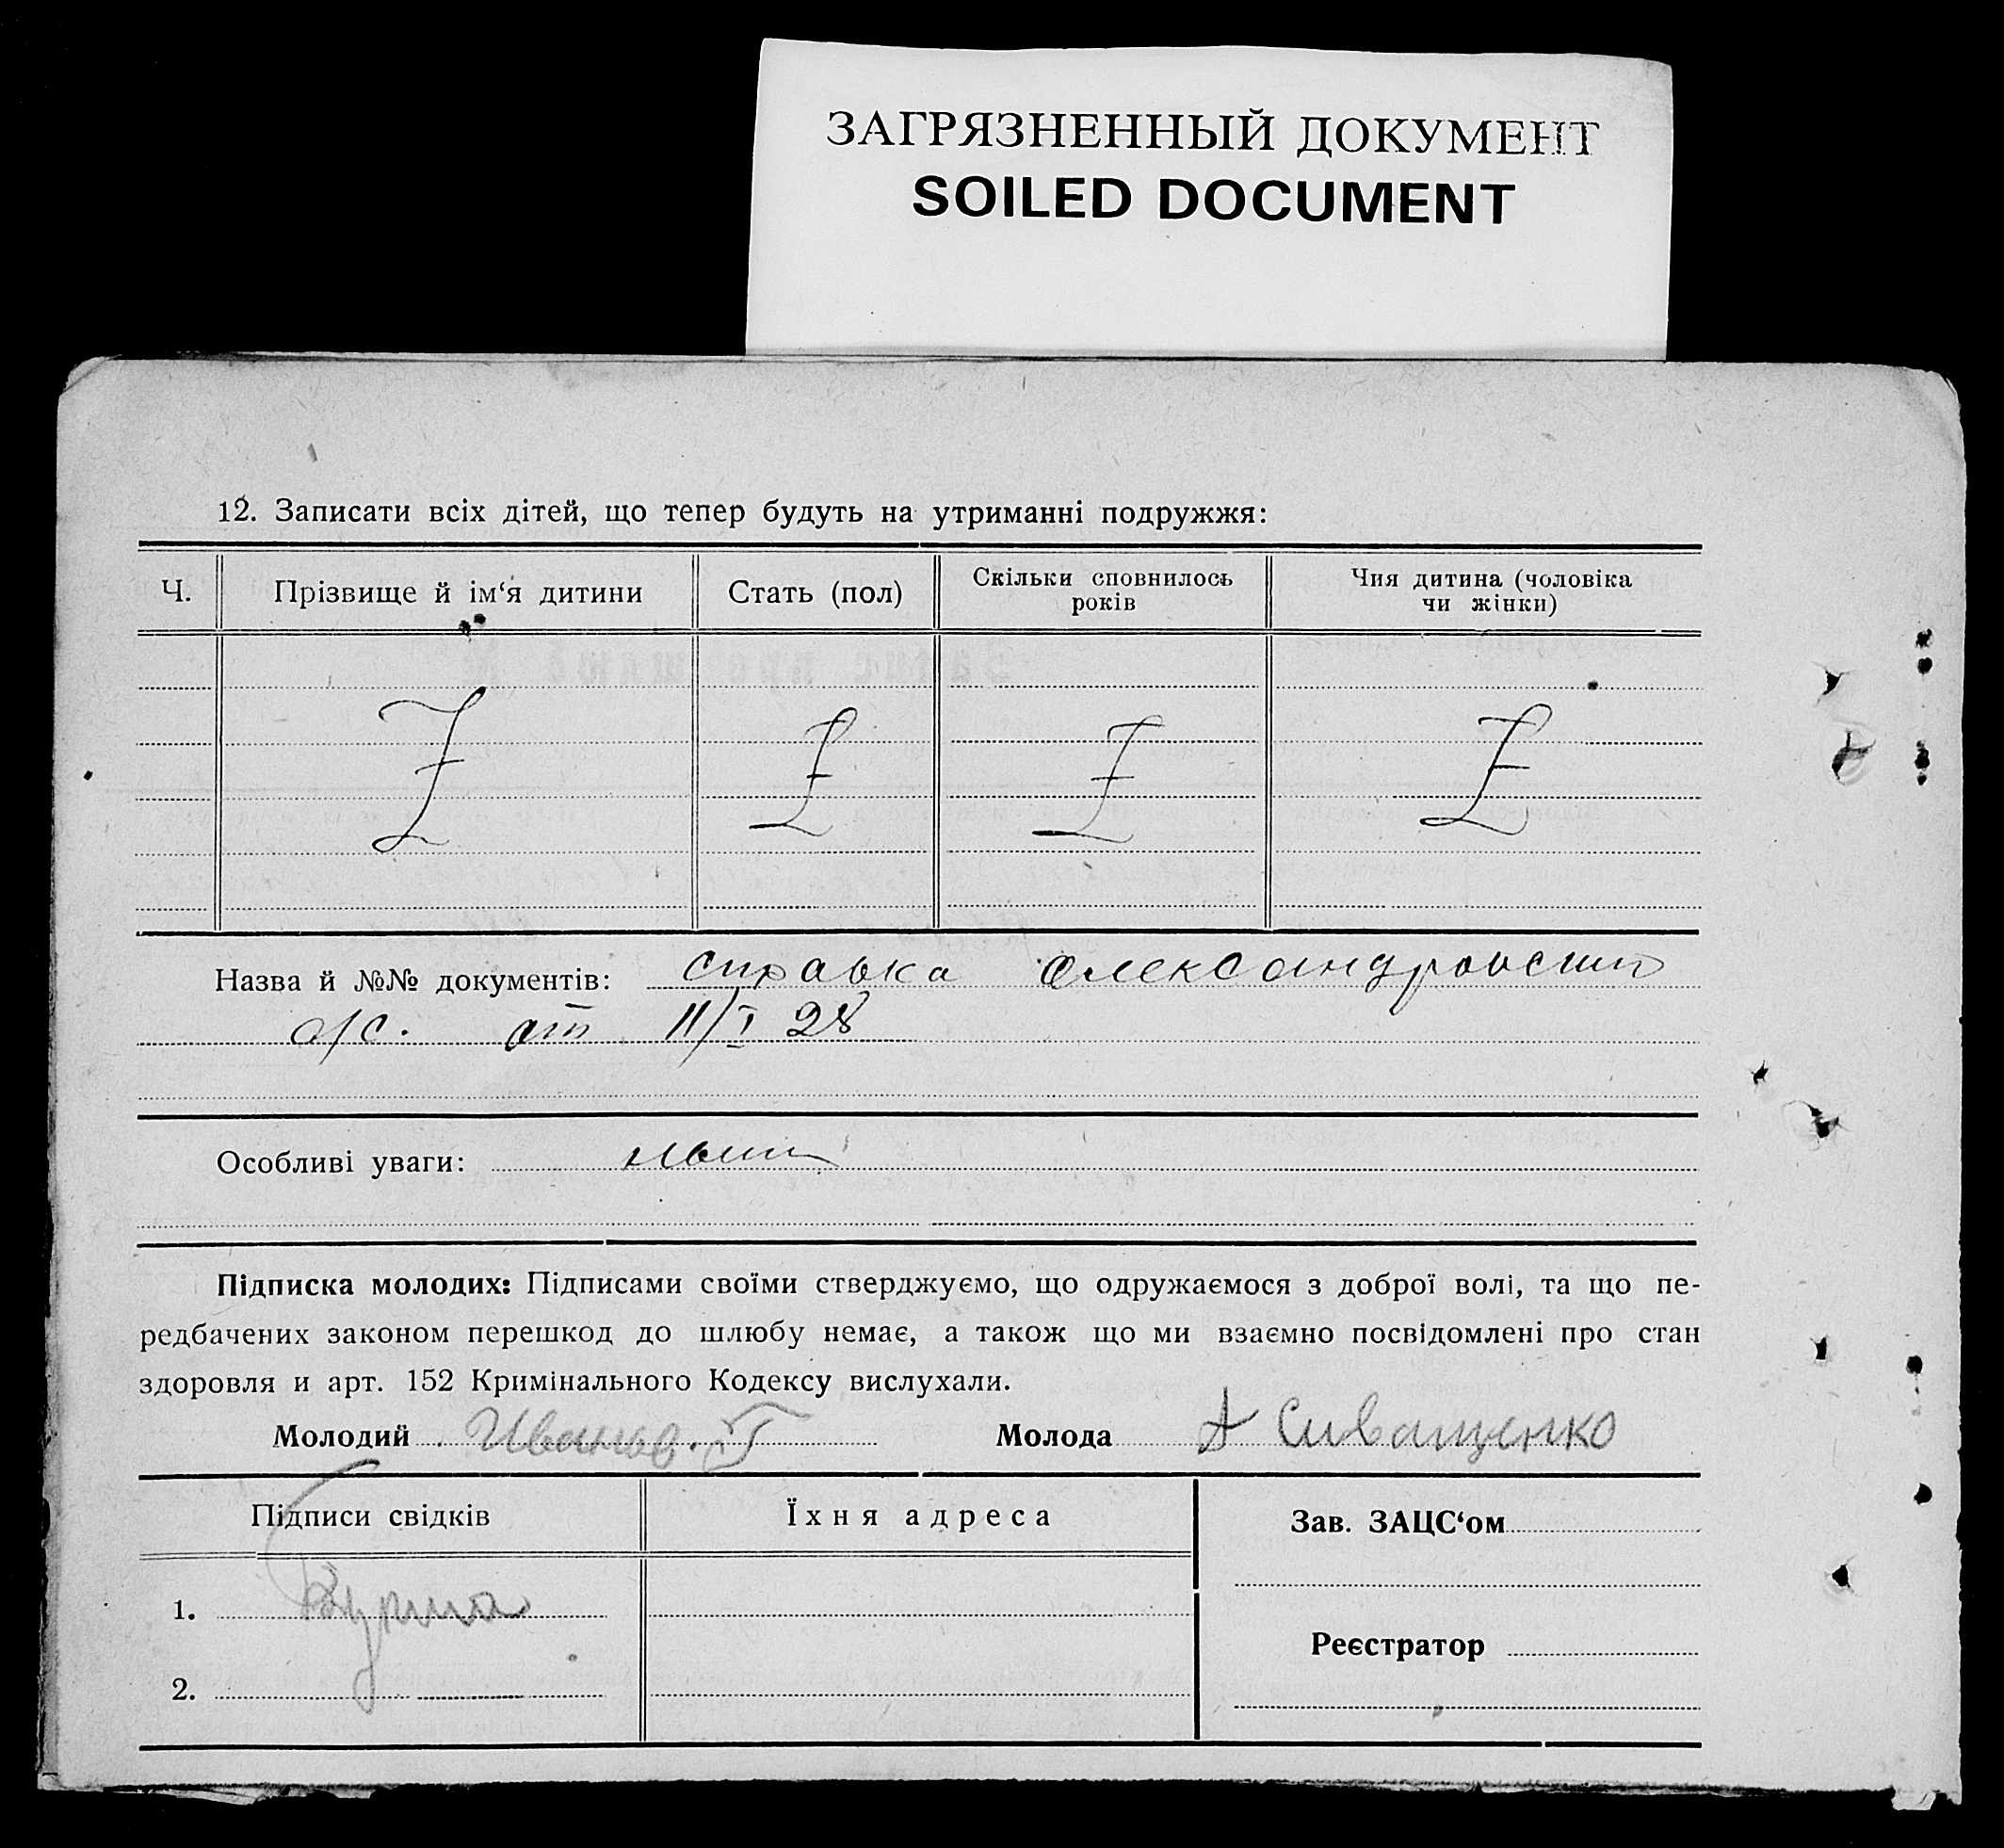 ЗАГРЯЗНЕННЫЙ ДОКУМЕНТ
SOILED DOCUMENT
12. Записати всіх дітей, що тепер будуть на утриманні подружжя:
Ч.
Прізвище й ім‘я дитини
Стать (пол)
Скільки сповнилось
років
Чия дитина (чоловіка
чи жінки)
Z Z Z Z
Назва й №№ документів: справка Олександровский
с/с. от 11/I 28
Особливі уваги:
Підписка молодих: Підписами своїми стверджуємо, що одружаємося з доброї волі, та що пе-
редбачених законом перешкод до шлюбу немає, а також що ми взаємно посвідомлені про стан
здоровля и арт. 152 Кримінального Кодексу вислухали.
Молодий Иванов. Г Молода А Сиващенко
Підписи свідків
Їхня адреса
Зав. ЗАЦС‘ом
1.
Реєстратор
2.